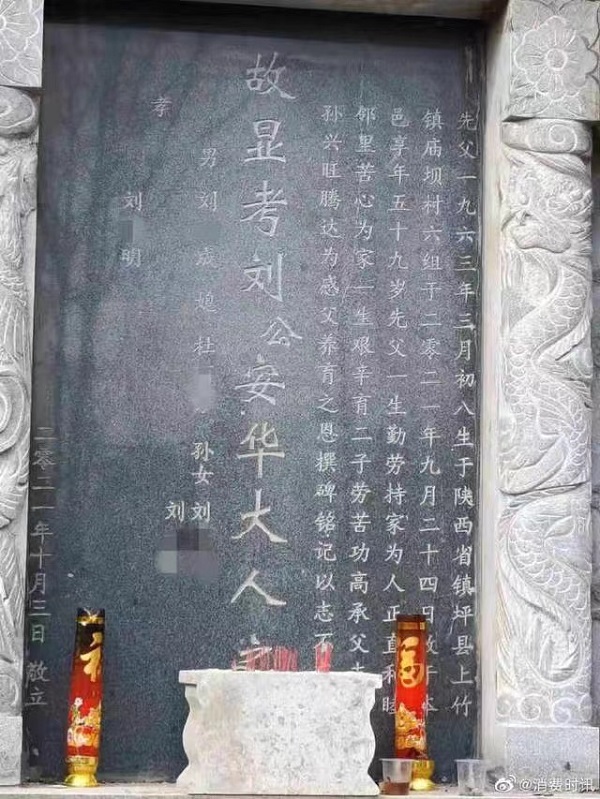 先父一九六三年三月初八生于陕西省镇坪县上竹
镇庙坝村六组于二零二一年九月二十四日故于本
邑享年五十九岁先父一生勤劳持家为人正直和睦
邻里苦心为家一生艰辛育二子劳苦功高承父
孙兴旺腾达为感父养育之恩撰碑铭记以志不
故显考刘公安华大人
男刘成媳杜
孙女刘
刘
孝
刘明
二零二一年十月三日敬立
福
@消费时讯